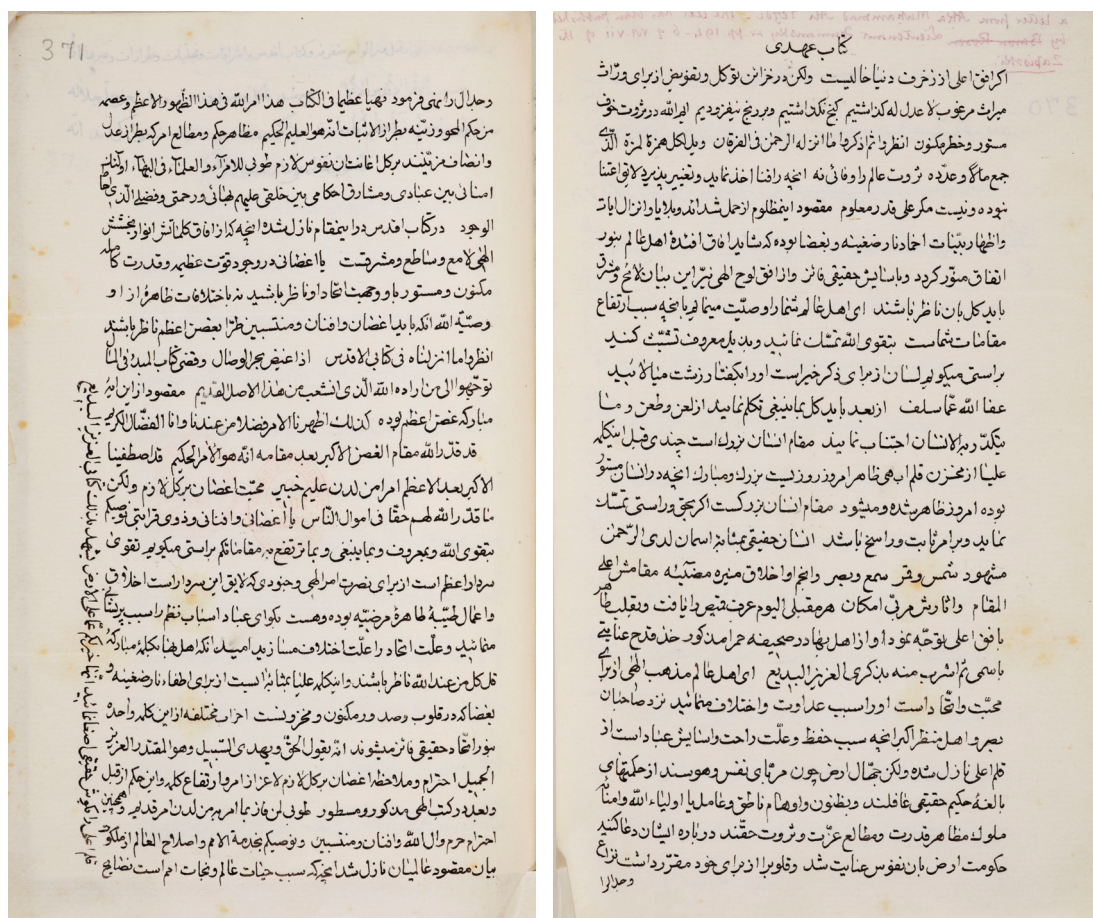 a letter from Muhammad Ali the text has been published
by Baron Rosen Lieutenant Toumansky of vol VII of the
Zapisski.
370
كتاب عهدی
اكر افق اعلی از زخرف دنیا خالیست ولكن در خزائن توكل وتفویض از برای وراث
میراث مرغوب لا عدل له كذاشتیم كنج نكذاشتیم وبر رنج نیفزودیم ایم الله در ثروت خوف
مستور وخطر مكنون انظروا ثم اذكروا ما انزله الرحمن فی الفرقان ویل لكل همزة لمزة الّذی
جمع مالاً وعدّده ثروت عالم را وفائی نه انچه را فنا اخذ نماید وتغییر پذیرد لایق اعتنا
نبوده ونیست مكر علی قدر معلوم مقصود اینمظلوم از حمل شداید وبلایا وانزال ایات
واظهار بیّنات اخماد نار ضغینه وبغضا بوده كه شاید افاق افئدهٔ اهل عالم بنور
اتفاق منوّر كردد وباسایش حقیقی فائز واز افق لوح الهی نیّر این بیان لائح ومشرق
باید كل بان ناظر باشند ای اهل عالم شما را وصیّت مینمایم بانچه سبب ارتفاع
مقامات شماست بتقوی الله تمسّك نمائید وبذیل معروف تشبّث كنید
براستی میكویم لسان از برای ذكر خیر است او را بكفتار زشت میالائید
عفا الله عمّا سلف از بعد باید كل بما ینبغی تكلم نمایید از لعن وطعن وما
یتكدّر به الانسان اجتناب نمایید مقام انسان بزرك است چندی قبل اینكلمهٔ
علیا از مخزن قلم ابهی ظاهر امروز روزیست بزرك ومبارك انچه در انسان مستور
بوده امروز ظاهر شده ومیشود مقام انسان بزركست اكر بحق وراستی تمسّك
نماید وبر امر ثابت وراسخ باشد انسان حقیقی بمثابهٔ اسمان لدی الرّحمن
مشهود شمس وقمر سمع وبصر وانجم او اخلاق منیرهٔ مضیئه مقامش اعلی
المقام واثارش مربّی امكان هر مقبلی الیوم عرف قمیص را یافت وبقلب طاهر
بافق اعلی توجّه نمود او از اهل بها در صحیفهٔ حمرا مذكور خذ قدح عنایتی
باسمی ثم اشرب منه بذكری العزیز البدیع ای اهل عالم مذهب الهی از برای
محبّت واتّحاد است او را سبب عداوت واختلاف منمائید نزد صاحبان
بصر واهل منظر اكبر انچه سبب حفظ وعلّت راحت واسایش عباد است از
قلم اعلی نازل شده ولكن جهّال ارض چون مربّای نفس وهوسند از حكمتهای
بالغهٔ حكیم حقیقی غافلند وبظنون واوهام ناطق وعامل یا اولیاء الله وامنائه
ملوك مظاهر قدرت ومطالع عزّت وثروت حقّند در باره ایشان دعا كنید
حكومت ارض بان نفوس عنایت شد وقلوب را از برای خود مقرّر داشت نزاع
وجدال را
371
وجدال را نهی فرمود نهیا عظیما فی الكتاب هذا امر الله فی هذا الظهور الاعظم وعصمه
من حكم المحو وزیّنه بطراز الاثبات انّه هو العلیم الحكیم مظاهر حكم ومطالع امر كه بطراز عدل
وانصاف مزیّنند بر كل اعانت ان نفوس لازم طوبی للامرآء والعلمآء فی البهآء اولئك
امنائی بین عبادی ومشارق احكامی بین خلقی علیهم بهائی ورحمتی وفضلی الّذی احاط
الوجود در كتاب اقدس در اینمقام نازل شده انچه كه از افاق كلماتش انوار بخشش
الهی لامع وساطع ومشرقست یا اغصانی در وجود قوّت عظیمه وقدرت كامله
مكنون ومستور باو وجهت اتّحاد او ناظر باشید نه باختلافات ظاهرهٔ از او
وصیّة الله انكه باید اغصان وافنان ومنتسبین طرّا بغصن اعظم ناظر باشند
انظروا ما انزلناه فی كتابی الاقدس اذا غیض بحر الوصال وقضی كتاب المبدء فی المآل
توجّهوا الی من اراده الله الّذی انشعب من هذا الاصل القدیم مقصود از این ایهٔ
مباركه غصن اعظم بوده كذلك اظهرنا الامر فضلا من عندنا وانا الفضّال الكریم
قد قدّر الله مقام الغصن الاكبر بعد مقامه انّه هو الامر الحكیم قد اصطفینا
الاكبر بعد الاعظم امرا من لدن علیم خبیر محبّت اغصان بر كل لازم ولكن
ما قدّر الله لهم حقّا فی اموال النّاس یا اغصانی وافنانی وذوی قرابتی نوصیكم
بتقوی الله وبمعروف وبما ینبغی وبما ترتفع به مقاماتكم براستی میكویم تقوی
سردار اعظم است از برای نصرت امر الهی وجنودی كه لایق این سردار است اخلاق
واعمال طیّبهٔ طاهرهٔ مرضیّه بوده وهست بكو ای عباد اسباب نظم را سبب پریشانی
منمائید وعلّت اتحاد را علّت اختلاف مسازید امید انكه اهل بها بكلمهٔ مباركهٔ
قل كل من عند الله ناظر باشند واینكلمهٔ علیا بمثابهٔ ابست از برای اطفاء نار ضغینه و
بغضا كه در قلوب وصدور مكنون ومخزونست احزاب مختلفه از این كلمهٔ واحده
بنور اتّحاد حقیقی فائز میشوند انّه یقول الحقّ ویهدی السّبیل وهو المقتدر العزیز
الجمیل احترام وملاحظهٔ اغصان بر كل لازم لاعزاز امر وارتفاع كلمه واین حكم از قبل
وبعد در كتب الهی مذكور ومسطور طوبی لمن فاز بما امر به من لدن امر قدیم وهمچنین
احترام حرم وآل الله وافنان ومنتسبین ونوصیكم بخدمة الامم واصلاح العالم از ملكوت
بیان مقصود عالمیان نازل شد انچه كه سبب حیات عالم ونجات امم است نصایح
قلم اعلی را بكوش حقیقی اصغا نمائید انّها خیر لكم عمّا علی الارض یشهد بذلك كتابی العزیز البدیع